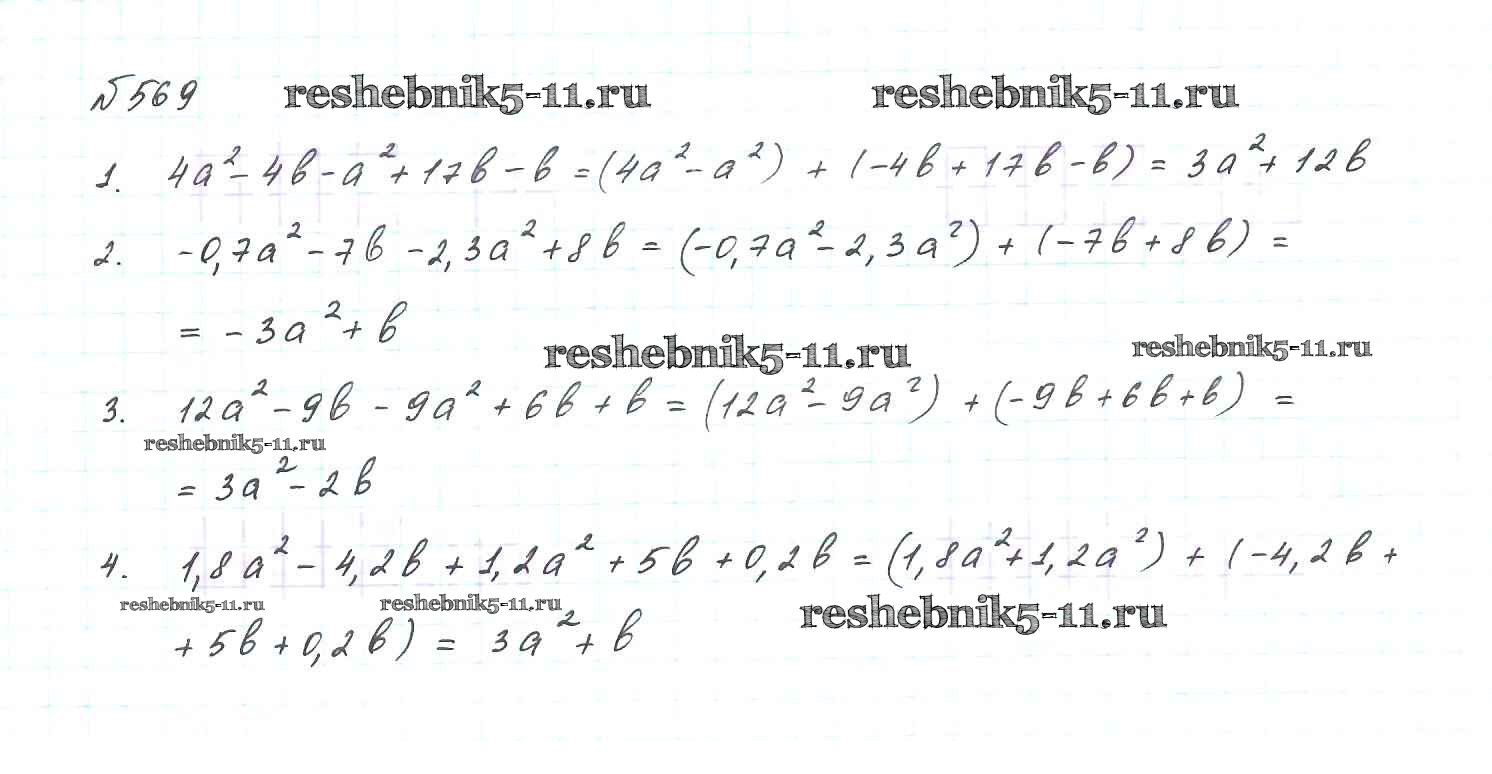 №569 reshebnik5-11.ru reshebnik5-11.ru
1. 4a² - 4b - a² + 17b - b = (4a² - a²) + (-4b + 17b - b) = 3a² + 12b
2. -0,7a² - 7b - 2,3a² + 8b = (-0,7a² - 2,3a²) + (-7b + 8b) =
= -3a² + b
reshebnik5-11.ru reshebnik5-11.ru
3. 12a² - 9b - 9a² + 6b + b = (12a² - 9a²) + (-9b + 6b + b) =
reshebnik5-11.ru
= 3a² - 2b
4. 1,8a² - 4,2b + 1,2a² + 5b + 0,2b = (1,8a² + 1,2a²) + (-4,2b +
reshebnik5-11.ru reshebnik5-11.ru reshebnik5-11.ru
+ 5b + 0,2b) = 3a² + b